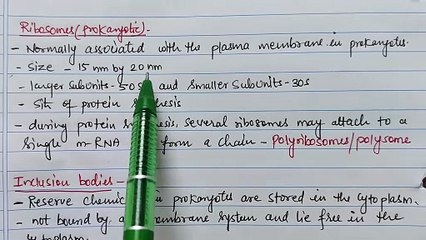 Ribosomes (prokaryotic) -
- Normally associated with the plasma membrane in prokaryotes.
- Size - 15 nm by 20 nm
- larger subunits - 50s and smaller subunits - 30s
- Site of protein
- during protein several ribosomes may attach to a
single m-RNA form a chain - Polyribosomes/polysome
Inclusion bodies -
- Reserve prokaryotes are stored in the cytoplasm.
- not bound by system and lie free in the